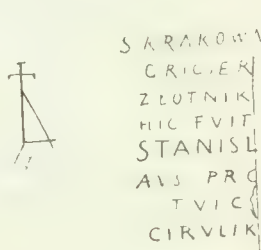 S KRAKOW
CRICIER
ZLUTNIK
HIC FVIT
STANISL
AVS PRO
TVICZ
CIRVLIK